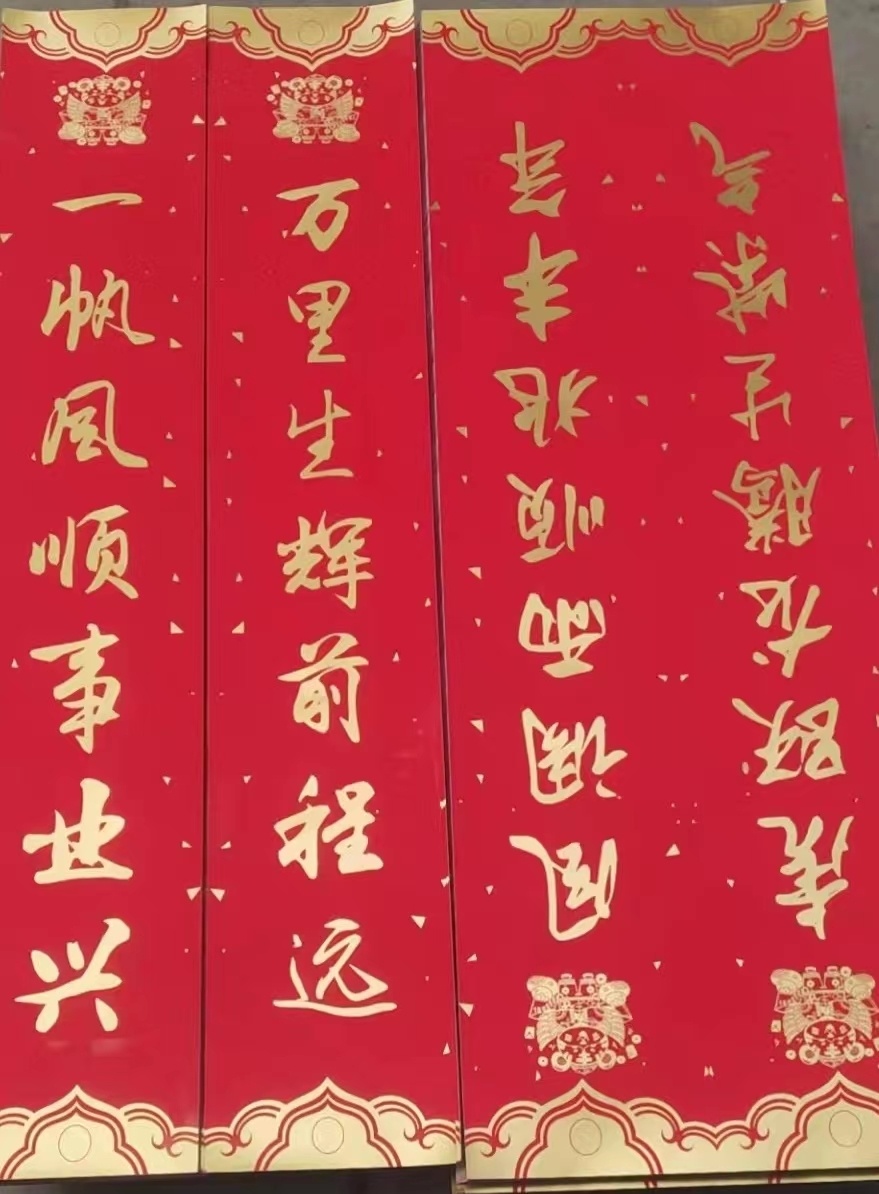 一帆风顺事业兴
万里生辉前程远
风调雨顺兆丰年
虎跃龙腾生紫气